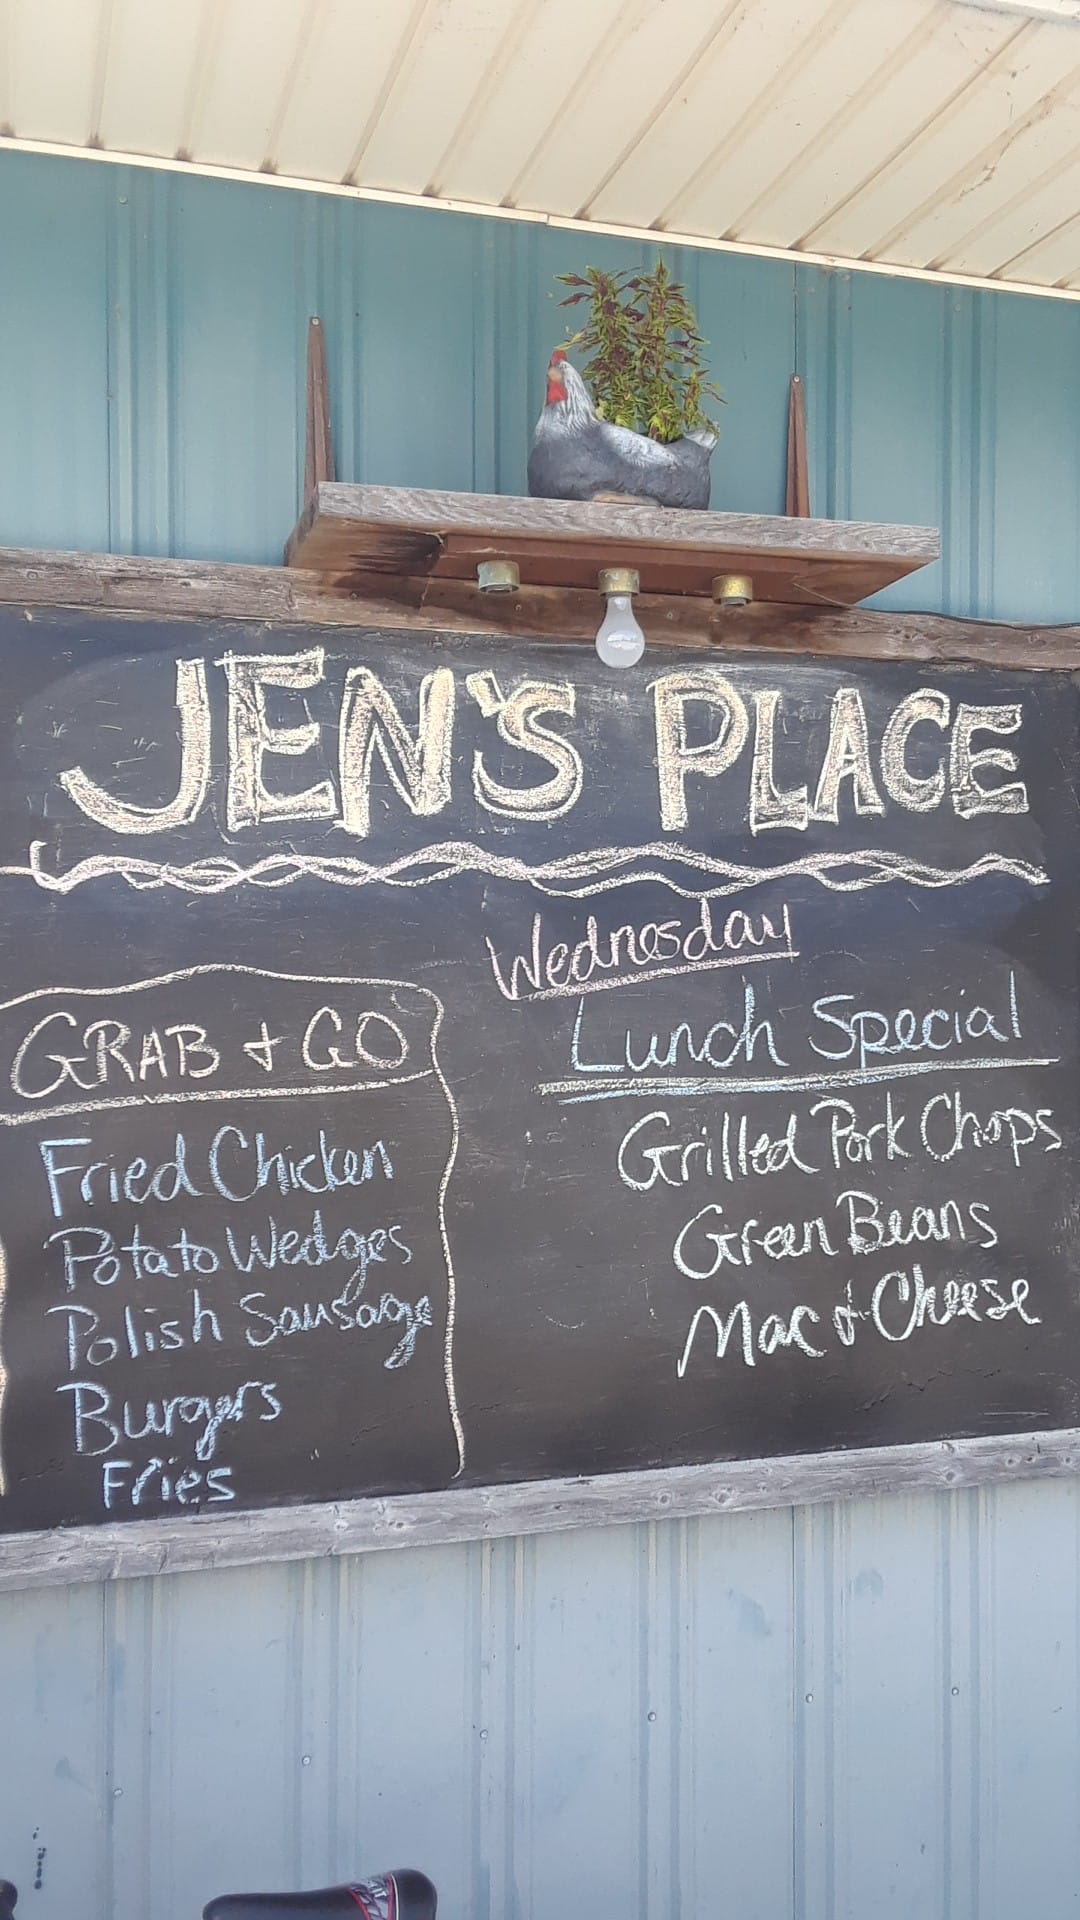 JEN'S PLACE
GRAB + GO
Fried Chicken
Potato Wedges
Polish Sausage
Burgers
Fries
Wednesday
Lunch Special
Grilled Pork Chops
Green Beans
Mac + Cheese